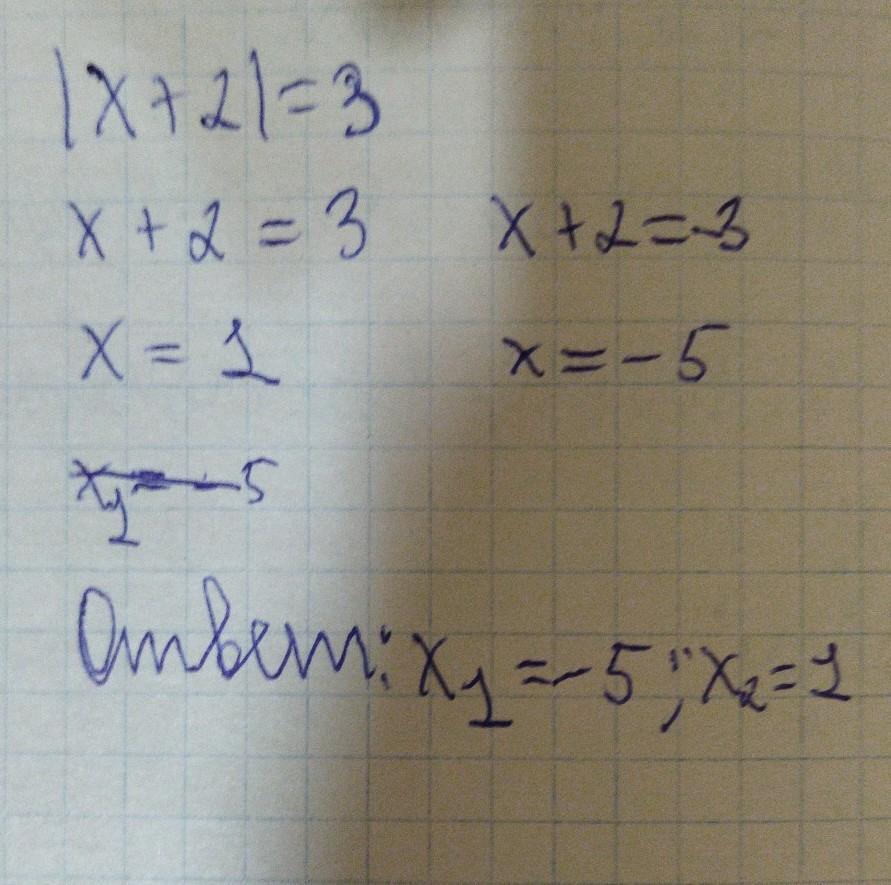 |x+2|=3
x+2=3 x+2=-3
x=1 x=-5
x₁=-5
Ответ: x₁=-5; x₂=1